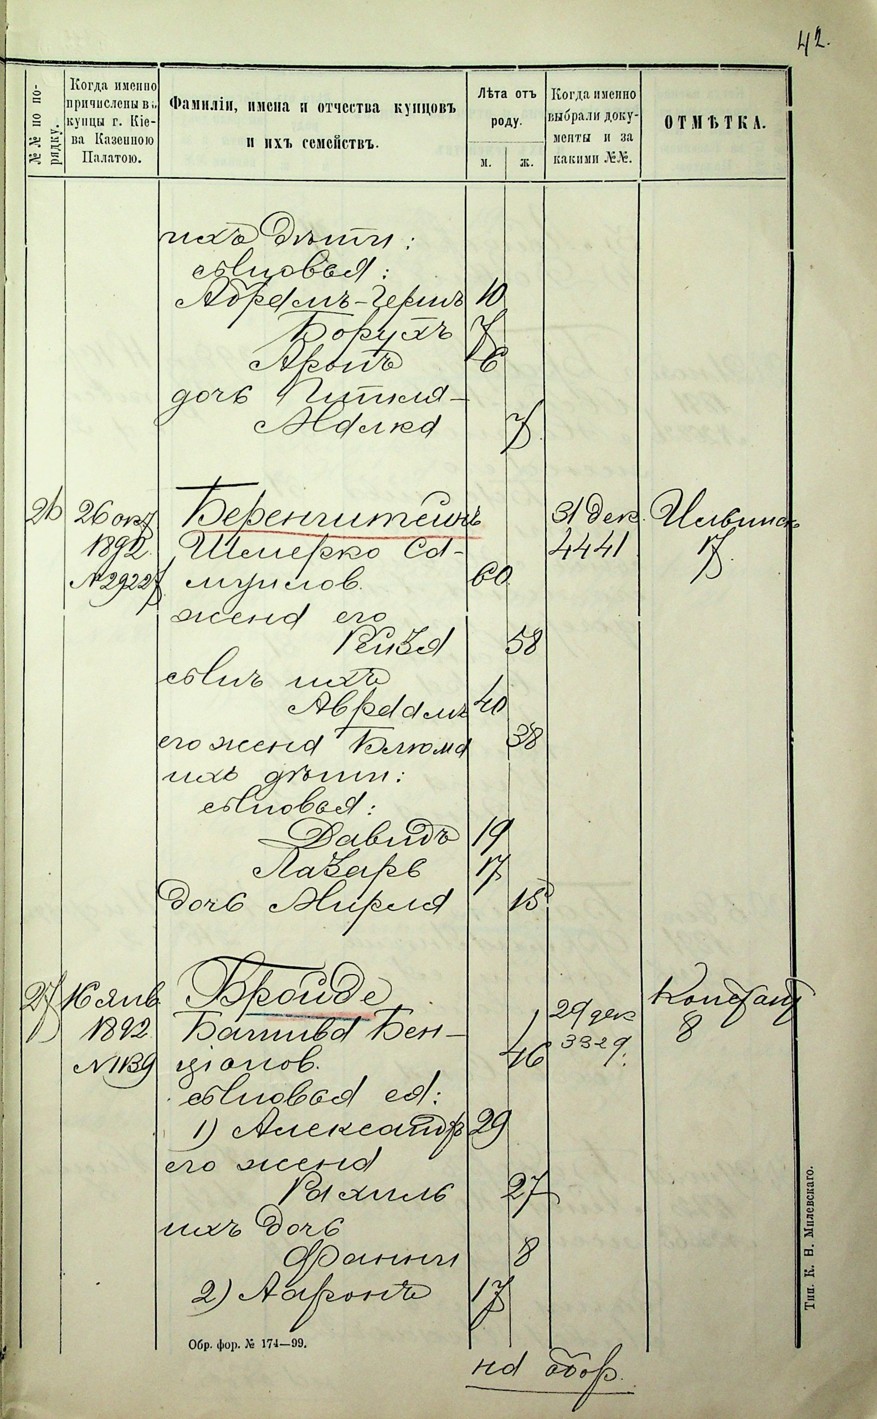 42.
№№ по по-
рядку.
Когда именно
причислены въ
купцы г. Кіе-
ва Казенною
Палатою.
Фамиліи, имена и отчества купцовъ
и ихъ семействъ.
Лѣта отъ
роду.
м.
ж.
Когда именно
выбрали доку-
менты и за
какими №№.
ОТМѢТКА.
ихъ дѣти:
сыновья:
Абрамъ-Гершъ 10
Борухъ 7
Аронъ 6
дочь Гитля-
Малка 7
26 26 окт Беренштейнъ 31 дек.
1892 Шмерко Са- 4441 17
№29227 муилов. 60
жена его
Рейзя 58
сынъ ихъ
Авраамъ 40
его жена Блюма 38
ихъ дѣти:
сыновья:
Давидъ 19
Лазарь 17
дочь Мирля 15
27 16 янв Бройде 29 дек
1892 Башива Бен- 46 3329. 8
№1139 ціонов.
сыновья ея:
1) Александръ 29
его жена
Рахиль 27
ихъ дочь
Фанни 8
2) Ааронъ 17
Обр. фор. № 174—99.
на обор.
Тип. К. Н. Милевскаго.